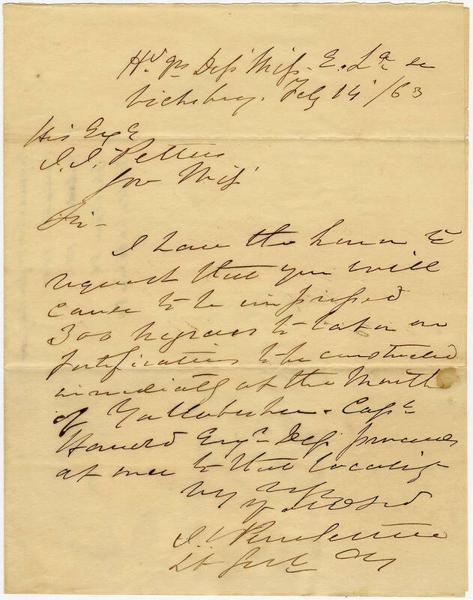 Hd qrs Dept Miss. E. La &c
Vicksburg. Feby 14 /63
His Excy
J. J. Pettus
Gov Miss
Sir -
I have the honor to
request that you will
cause to be impressed
300 negroes to labor on
fortifications to be constructed
immediately at the Mouth
of Yallobusha. Capt
Engr Dept proceeds
at once to that locality
Very
yr obt Svt
J C Pemberton
Lt Genl Cg